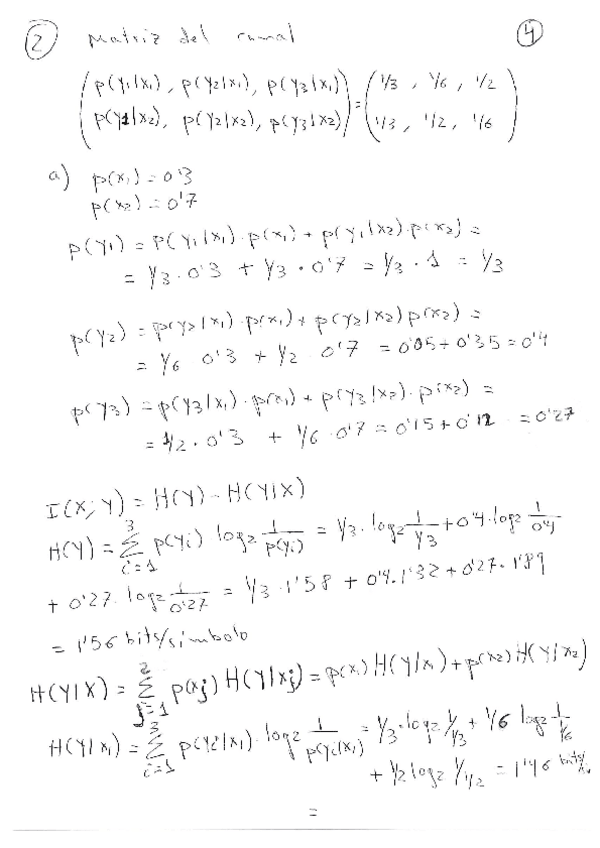 2 Matriz del canal 4
( p(y1|x1), p(y2|x1), p(y3|x1) ) = ( 1/3, 1/6, 1/2 )
( p(y1|x2), p(y2|x2), p(y3|x2) ) ( 1/3, 1/2, 1/6 )
a) p(x1) = 0'3
p(x2) = 0'7
p(y1) = p(y1|x1)·p(x1) + p(y1|x2)·p(x2) =
= 1/3 · 0'3 + 1/3 · 0'7 = 1/3 · 1 = 1/3
p(y2) = p(y2|x1)·p(x1) + p(y2|x2) p(x2) =
= 1/6 0'3 + 1/2 · 0'7 = 0'05 + 0'35 = 0'4
p(y3) = p(y3|x1)·p(x1) + p(y3|x2)·p(x2) =
= 1/2 · 0'3 + 1/6 · 0'7 = 0'15 + 0'12 = 0'27
I(X;Y) = H(Y) - H(Y|X)
H(Y) = Σ_{i=1}^{3} p(yi) log2 1/p(yi) = 1/3 · log2 1/(1/3) + 0'4 · log2 1/0'4
+ 0'27 · log2 1/0'27 = 1/3 · 1'58 + 0'4 · 1'32 + 0'27 · 1'89
= 1'56 bits/simbolo
H(Y|X) = Σ_{j=1}^{2} p(xj) H(Y|xj) = p(x1) H(Y|x1) + p(x2) H(Y|x2)
H(Y|x1) = Σ_{i=1}^{3} p(yi|x1) · log2 1/p(yi|x1) = 1/3 · log2 1/(1/3) + 1/6 log2 1/(1/6)
+ 1/2 log2 1/(1/2) = 1'46
=